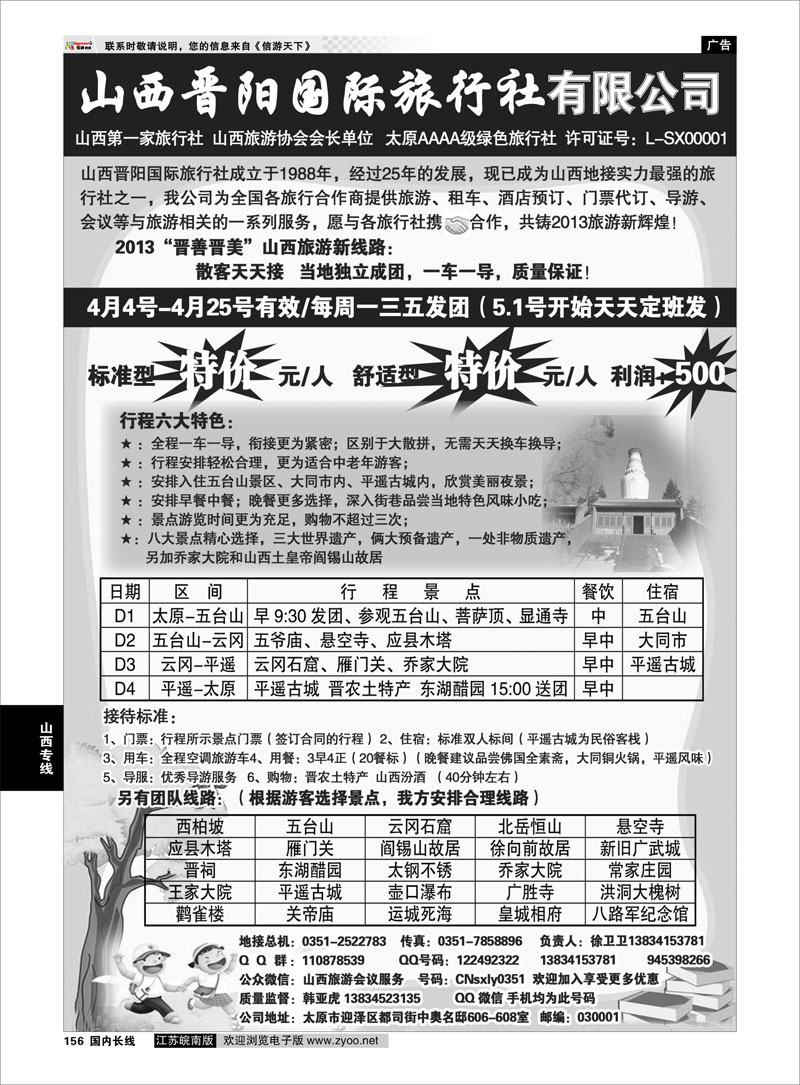 联系时敬请说明，您的信息来自《信游天下》
广告
山西晋阳国际旅行社有限公司
山西第一家旅行社 山西旅游协会会长单位 太原AAAA级绿色旅行社 许可证号：L-SX00001
山西晋阳国际旅行社成立于1988年，经过25年的发展，现已成为山西地接实力最强的旅
行社之一，我公司为全国各旅行合作商提供旅游、租车、酒店预订、门票代订、导游、
会议等与旅游相关的一系列服务，愿与各旅行社携 合作，共铸2013旅游新辉煌！
2013“晋善晋美”山西旅游新线路：
散客天天接 当地独立成团，一车一导，质量保证！
4月4号-4月25号有效/每周一三五发团（5.1号开始天天定班发）
标准型 特价 元/人 舒适型 特价 元/人 利润：500
行程六大特色：
★：全程一车一导，衔接更为紧密；区别于大散拼，无需天天换车换导；
★：行程安排轻松合理，更为适合中老年游客；
★：安排入住五台山景区、大同市内、平遥古城内，欣赏美丽夜景；
★：安排早餐中餐；晚餐更多选择，深入街巷品尝当地特色风味小吃；
★：景点游览时间更为充足，购物不超过三次；
★：八大景点精心选择，三大世界遗产，俩大预备遗产，一处非物质遗产，
另加乔家大院和山西土皇帝阎锡山故居
日期 区 间 行 程 景 点 餐饮 住宿
D1 太原-五台山 早9:30发团、参观五台山、菩萨顶、显通寺 中 五台山
D2 五台山-云冈 五爷庙、悬空寺、应县木塔 早中 大同市
D3 云冈-平遥 云冈石窟、雁门关、乔家大院 早中 平遥古城
D4 平遥-太原 平遥古城 晋农土特产 东湖醋园 15:00送团 早中
接待标准：
1、门票：行程所示景点门票（签订合同的行程） 2、住宿：标准双人标间（平遥古城为民俗客栈）
3、用车：全程空调旅游车4、用餐：3早4正（20餐标）（晚餐建议品尝佛国全素斋，大同铜火锅，平遥风味）
5、导服：优秀导游服务 6、购物：晋农土特产 山西汾酒 （40分钟左右）
另有团队线路：（根据游客选择景点，我方安排合理线路）
西柏坡 五台山 云冈石窟 北岳恒山 悬空寺
应县木塔 雁门关 阎锡山故居 徐向前故居 新旧广武城
晋祠 东湖醋园 太钢不锈 乔家大院 常家庄园
王家大院 平遥古城 壶口瀑布 广胜寺 洪洞大槐树
鹳雀楼 关帝庙 运城死海 皇城相府 八路军纪念馆
地接总机：0351-2522783 传真：0351-7858896 负责人：徐卫卫13834153781
Q Q 群：110878539 QQ号码：122492322 13834153781 945398266
公众微信：山西旅游会议服务 号码：CNsxly0351 欢迎加入享受更多优惠
质量监督：韩亚虎 13834523135 QQ 微信 手机均为此号码
公司地址：太原市迎泽区都司街中奥名邸606-608室 邮编：030001
山西专线
156 国内长线 江苏皖南版 欢迎浏览电子版 www.zyoo.net